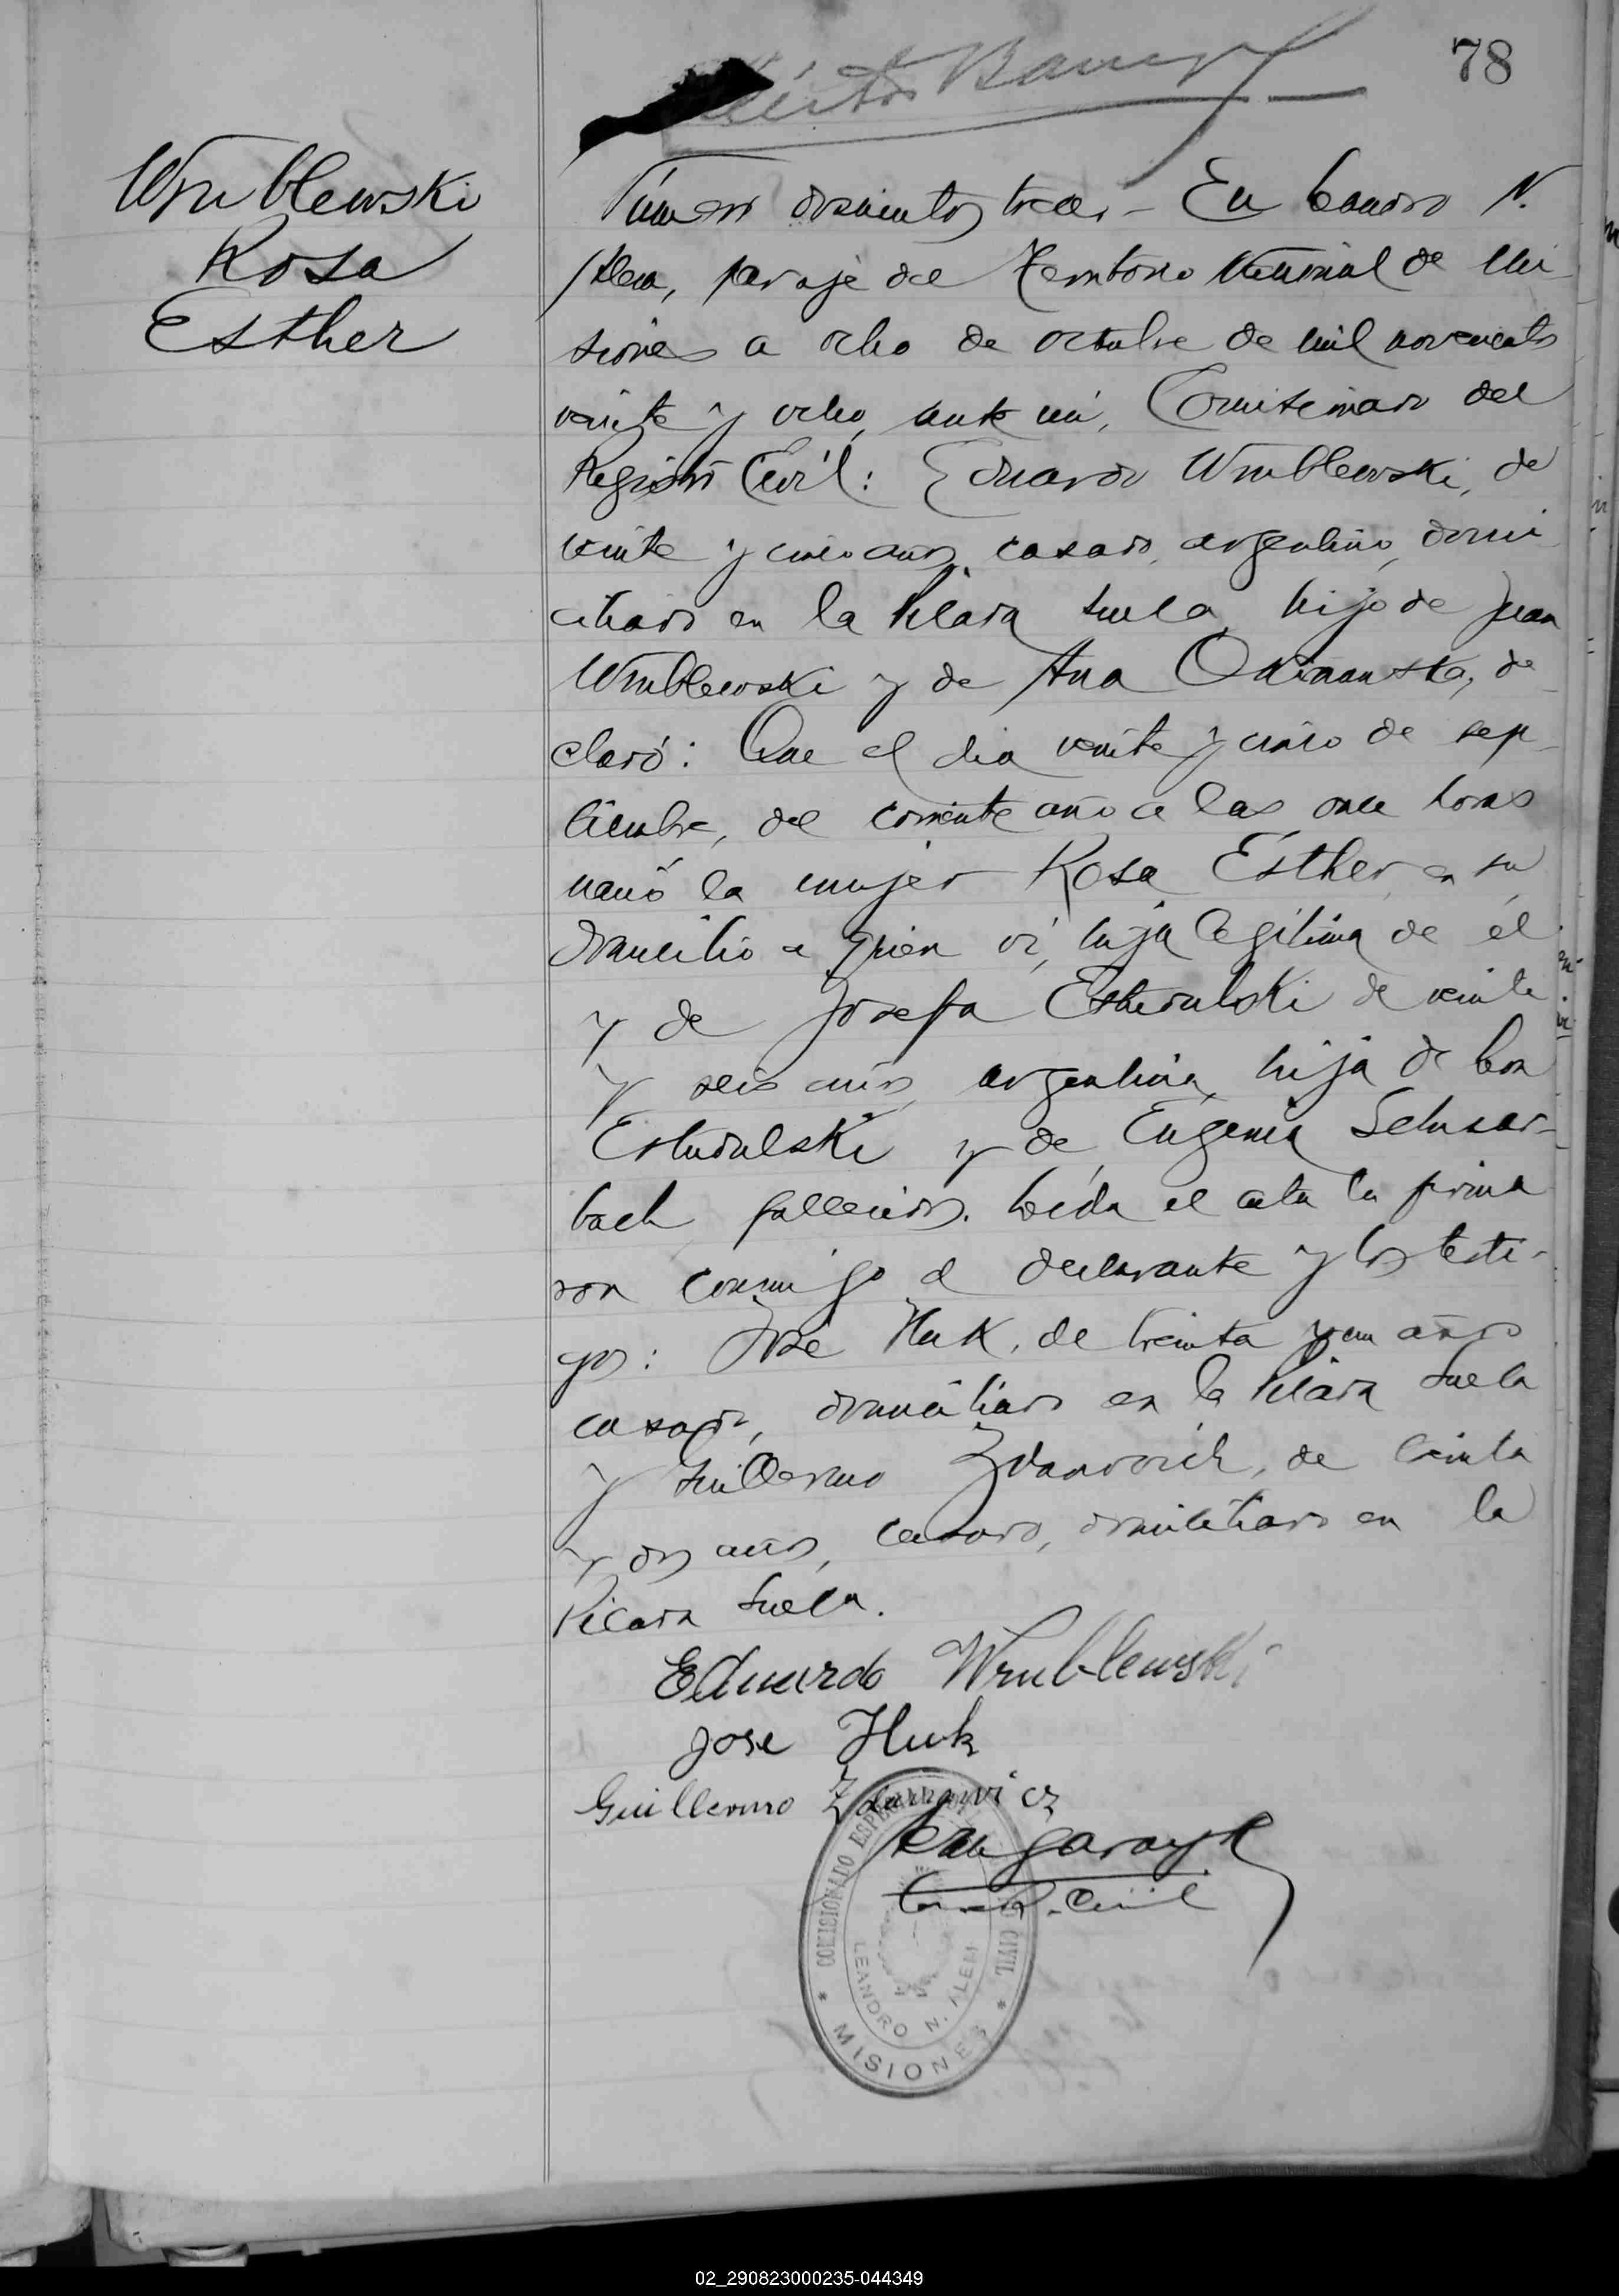 78
Wrublewski
Rosa
Esther
Número doscientos trece - En Leandro N.
Alem, paraje del Territorio Nacional de Mi
siones a ocho de octubre de mil novecientos
veinte y ocho, ante mí, Comisionado del
Registro Civil: Eduardo Wrublewski, de
veinte y cinco años, casado, argentino, domi
ciliado en la Picada Suela, hijo de Juan
Wrublewski y de Ana de
claró: Que el dia veinte y cinco de sep
tiembre, del corriente año a las once horas
nació la mujer Rosa Esther en su
domicilio a quien vi, hija legítima de él
y de Josefa de veinte
y seis años, argentina, hija de
y de Eugenia
bach fallecidos. Leída el acta la firma
ron conmigo el declarante y los testi-
gos: José Huk, de treinta y un años
casado, domiciliado en la Picada Suela
y Guillermo Zdanovich, de treinta
y dos años, casado, domiciliado en la
Picada Suela.
Eduardo Wrublewski
Jose Huk
Guillermo Zdanowicz
Civil
COMISIONADO CIVIL
LEANDRO N. ALEM
* MISIONES *
02_290823000235-044349